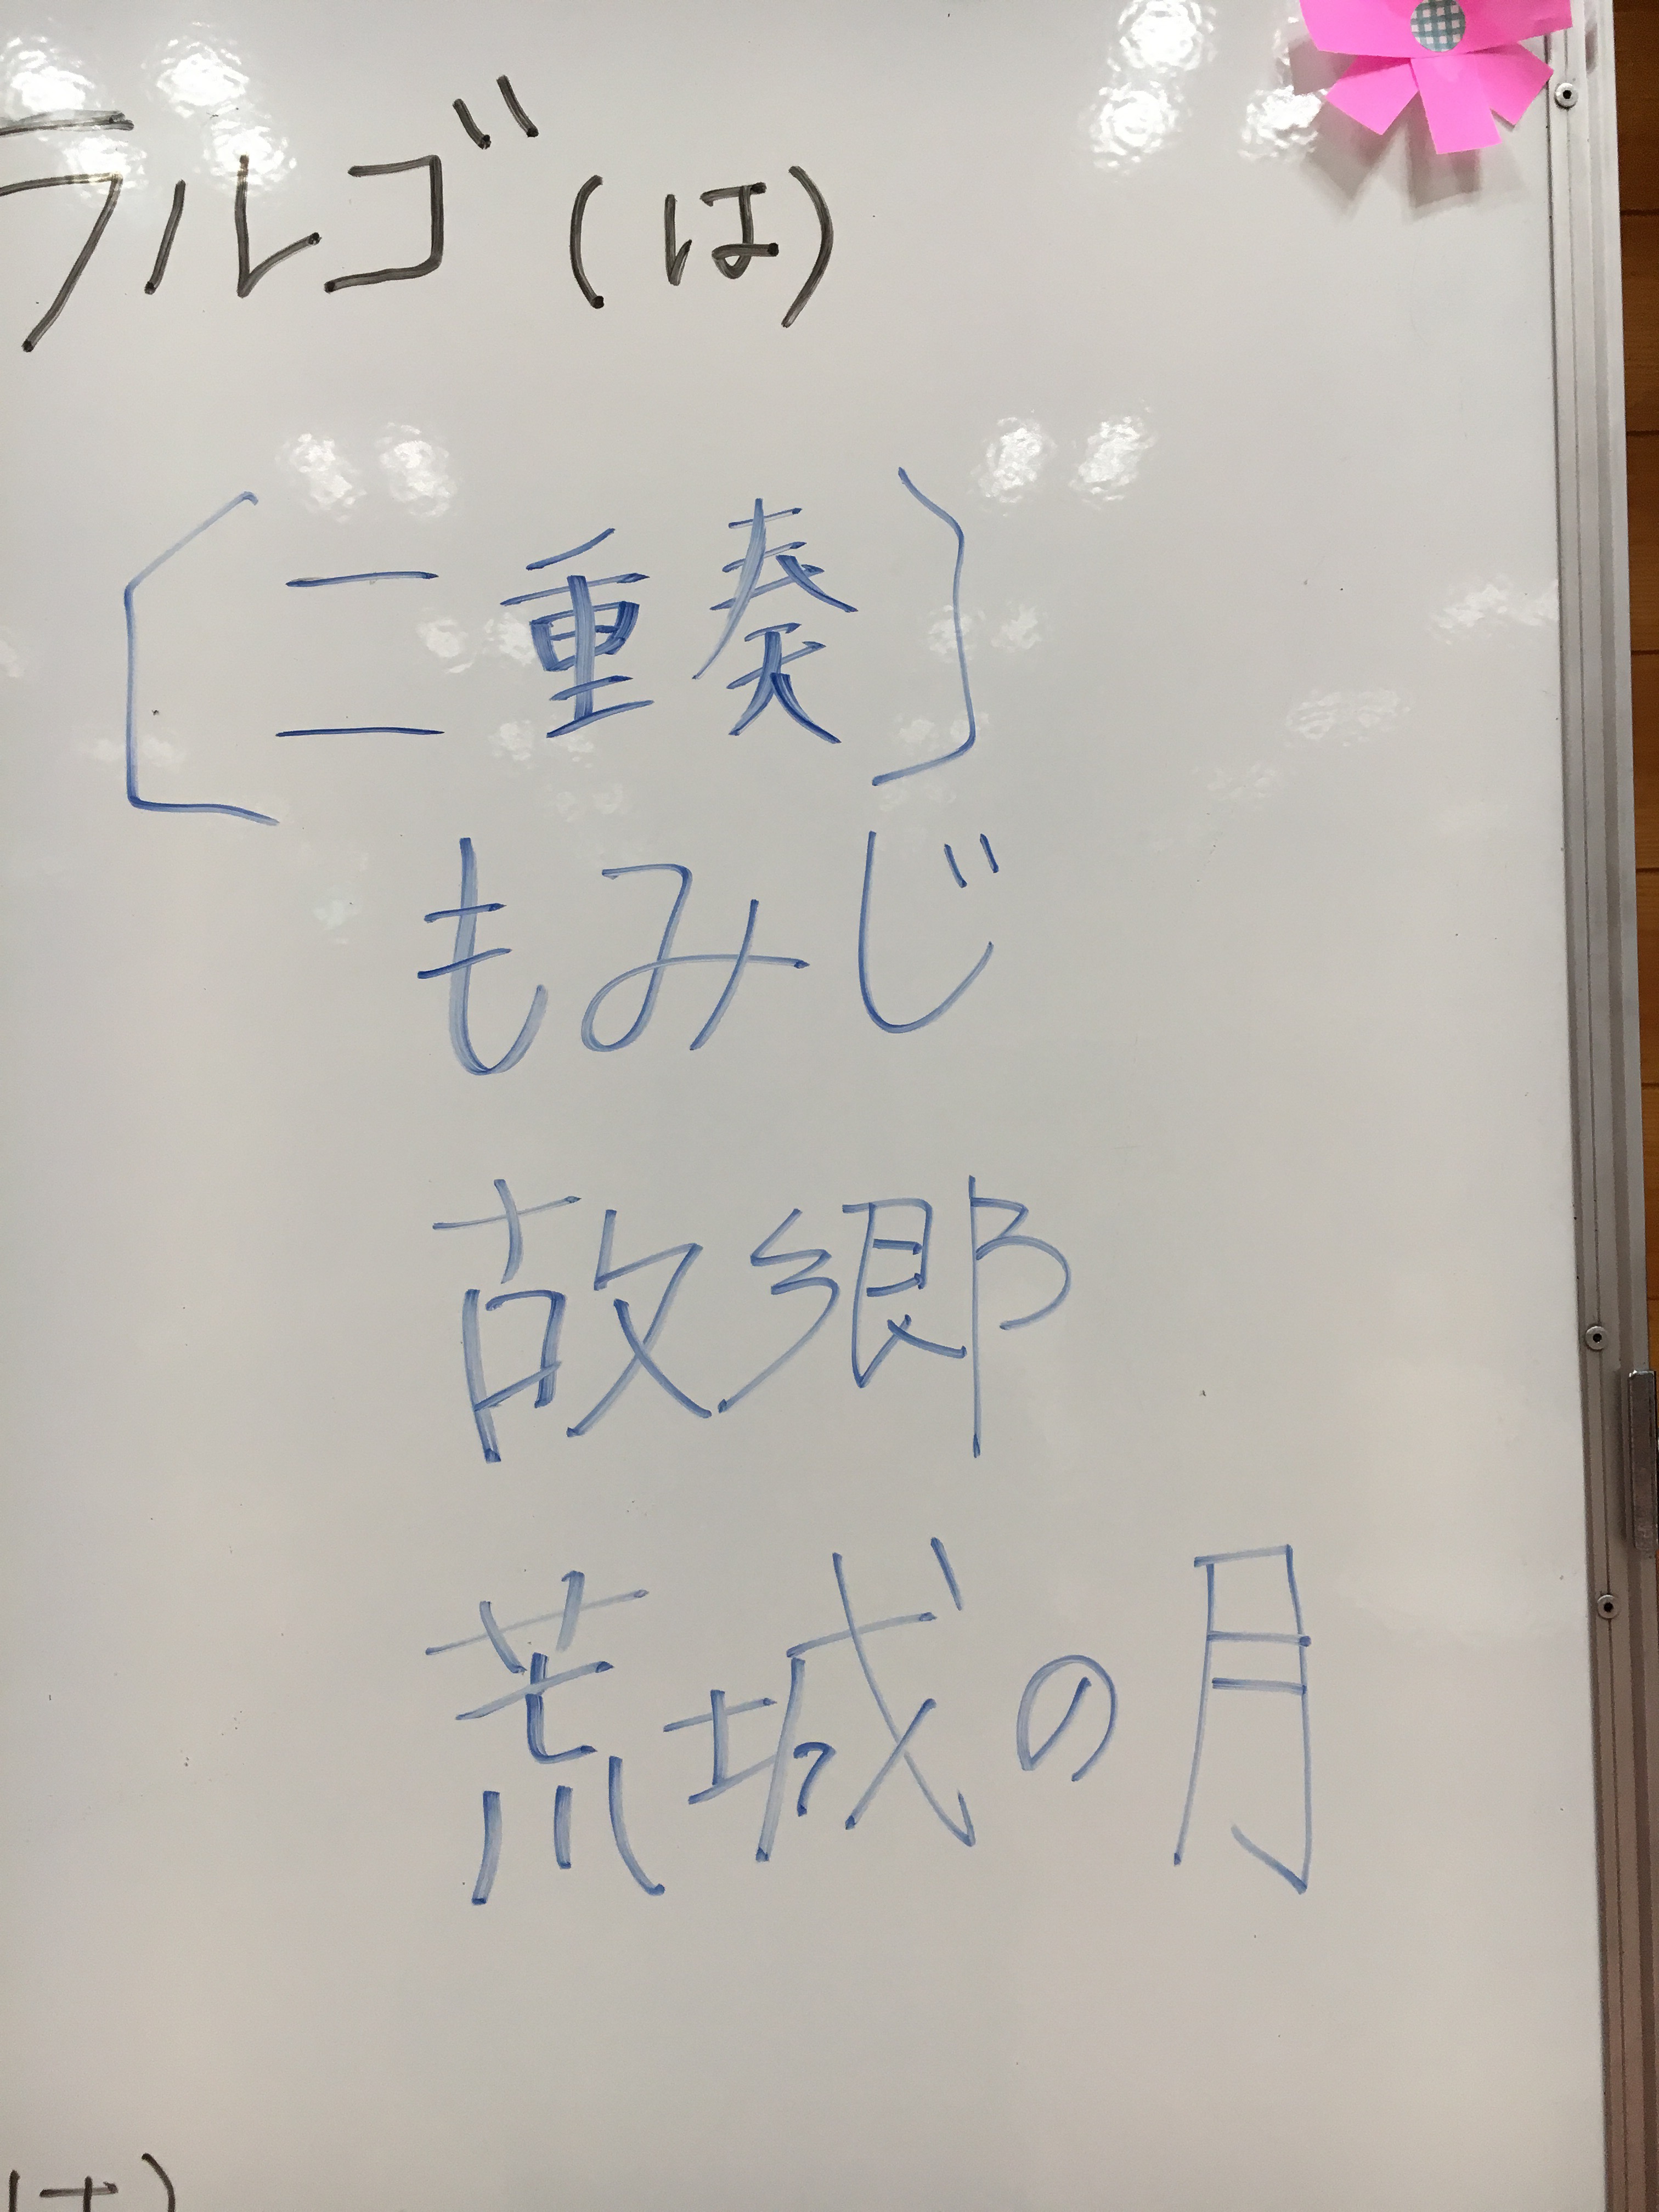 ラルゴ(は)
〔二重奏〕
もみじ
故郷
荒城の月